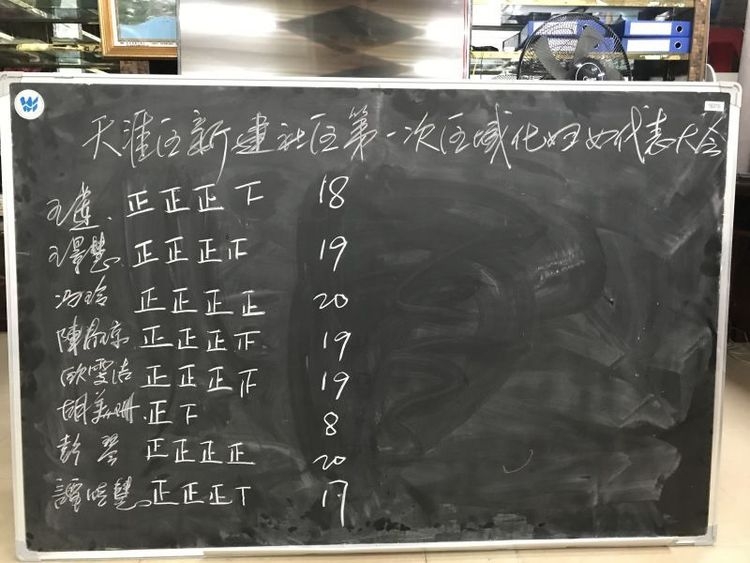 天涯区新建社区第一次区域化妇女代表大会
王莲. 正正正下 18
王泽慧. 正正正正 19
冯玲 正正正正 20
陳晶琼 正正正正 19
欧雯洁 正正正正 19
胡美珊. 正下 8
彭翠 正正正正 20
譚晓慧. 正正正丅 17